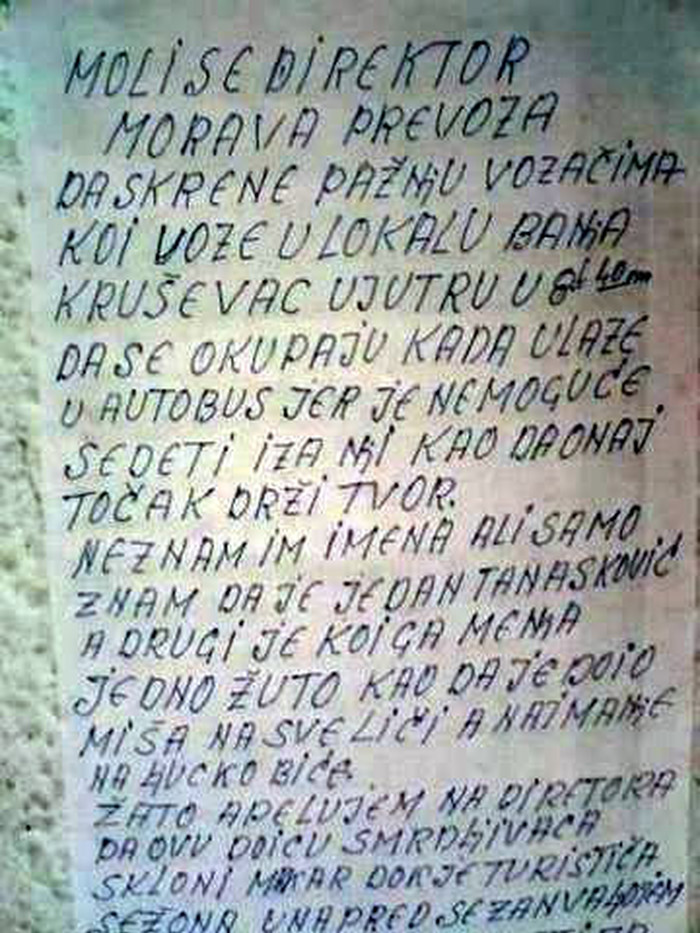 MOLI SE DIREKTOR
MORAVA PREVOZA
DA SKRENE PAŽNjU VOZAČIMA
KOI VOZE U LOKALU BANjA
KRUŠEVAC UJUTRU U 6 h 40 m
DA SE OKUPAJU KADA ULAZE
U AUTOBUS JER JE NEMOGUĆE
SEDETI IZA NjI KAO DA ONAJ
TOČAK DRŽI TVOR.
NEZNAM IM IMENA ALI SAMO
ZNAM DA JE JEDAN TANASKOVIĆ
A DRUGI JE KOI GA MENjA
JEDNO ŽUTO KAO DA JE DOIO
MIŠA NA SVE LIČI A NAIMANjE
NA LjUCKO BIĆE.
ZATO APELUJEM NA DIRETORA
DA OVU DOICU SMRDLjIVACA
SKLONI MAKAR DOK JE TURISTIČA
SEZONA UNAPRED SE ZANVALjUJEM